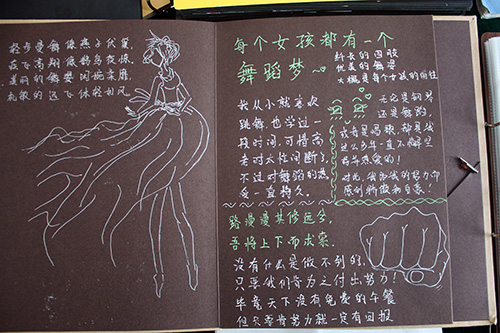 轻步曼舞像燕子伏巢,
疾飞高翔像鹊鸟夜惊。
美丽的舞姿闲婉柔靡,
机敏的迅飞体轻如风。
每个女孩都有一个
舞蹈梦~
纤长的四肢
优美的舞姿
大概是每个女孩的向往
我从小就喜欢
跳舞,也学过一
段时间,可惜高
考时太忙间断了,
不过对舞蹈的热
爱一直持久。
无论是钢琴
还是舞蹈,
或者是唱歌 都是我
这么多年一直不懈坚
持和热爱的!
对此,我为我的努力而
感到骄傲和自豪!
路漫漫其修远兮,
吾将上下而求索.
没有什么是做不到的,
只要我们肯为之付出努力!
毕竟天下没有免费的午餐
但只要肯努力就一定有回报